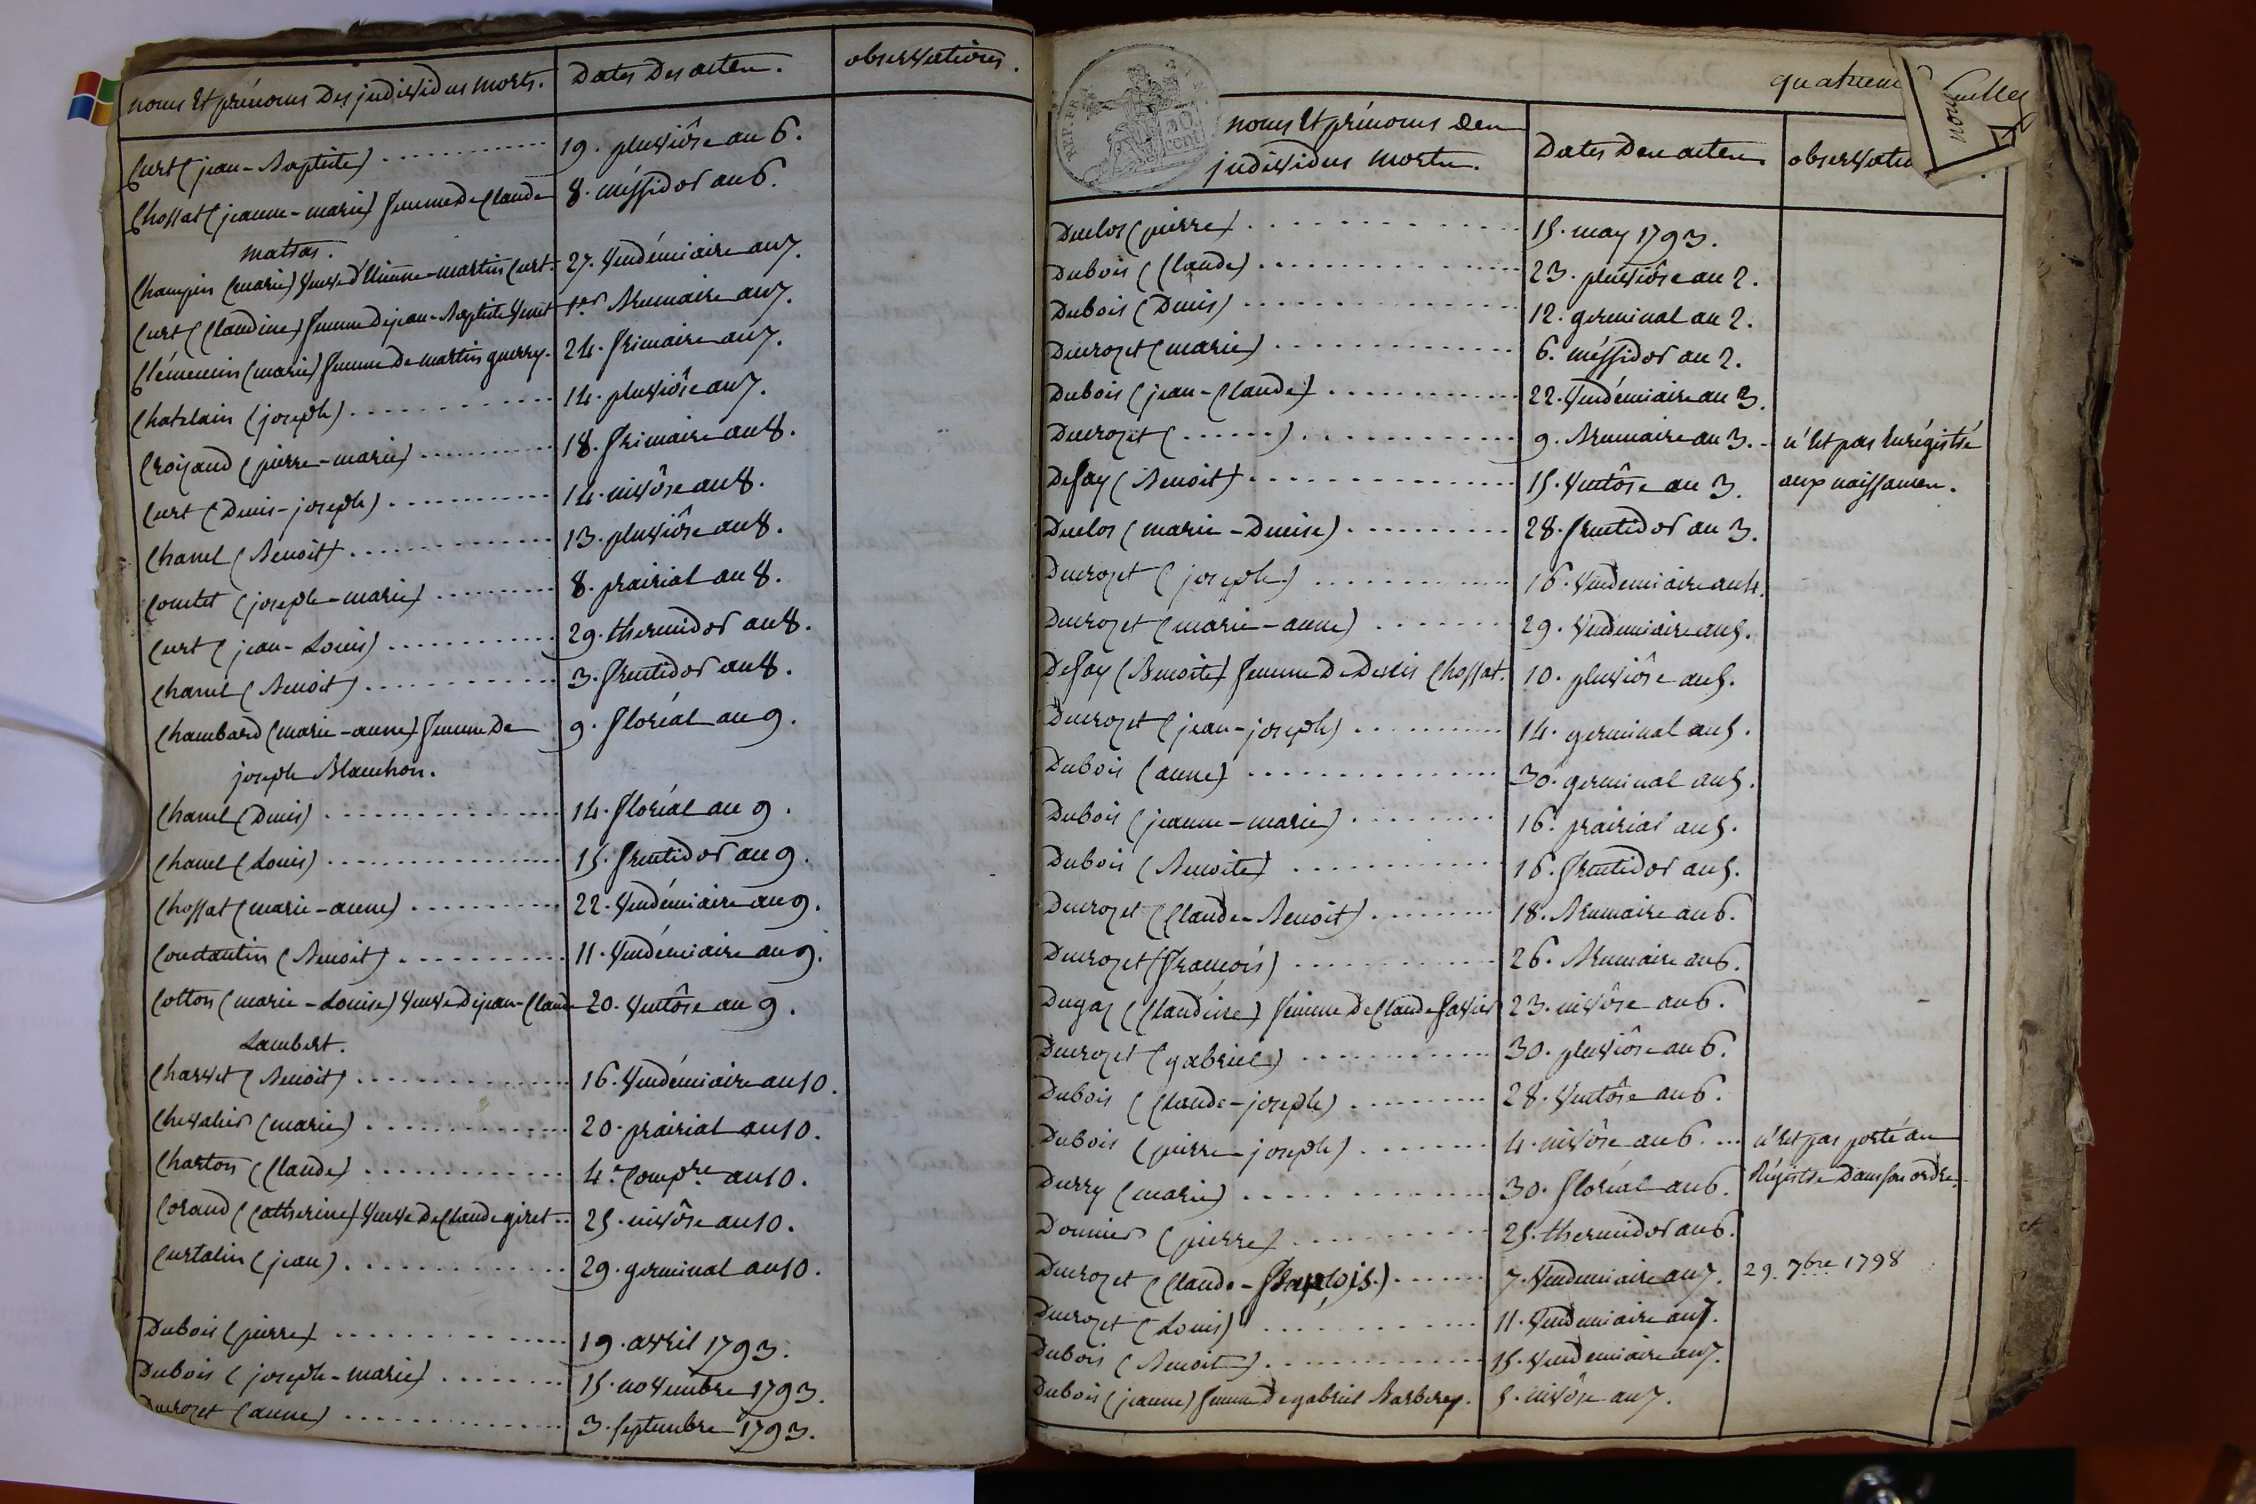 noms Et prénoms Des individus morts. Dates Des actes. observations.
Curt (jean-Baptiste) 19. pluviôse an 6.
Chossat (jeanne-marie) femme De Claude 8. méssidor an 6.
matras.
Champin (marie) veuve d'Etienne-martin Curt. 27. vendémiaire an 7.
Curt (Claudine) femme De jean-Baptiste 1er Brumaire an 7.
Clémencin (marie) femme De martin guerry. 24. frimaire an 7.
Chatelain (joseph) 14. pluviôse an 7.
Croijaud (pierre-marie) 18. frimaire an 8.
Curt (Denis-joseph) 14. nivôse an 8.
Chanel (Benoit) 13. pluviôse an 8.
Comtet (joseph-marie) 8. prairial an 8.
Curt (jean-Louis) 29. thermidor an 8.
Chanel (Benoit) 3. fructidor an 8.
Chambard (marie-anne) femme De 9. floréal an 9.
joseph Blanchon.
Chanel (Denis) 14. floréal an 9.
Chanel (Louis) 15. fructidor an 9.
Chossat (marie-anne) 22. vendémiaire an 9.
Constantin (Benoit) 11. vendémiaire an 9.
Cotton (marie-Louise) veuve De jean-Claude 20. ventôse an 9.
Lambert.
Charvet (Benoit) 16. vendémiaire an 10.
Chevalier (marie) 20. prairial an 10.
Charton (Claude) 4.e Comp.re an 10.
Corand (Catherine) veuve De Claude giret 25. nivôse an 10.
Curtalin (jean) 29. germinal an 10.
Dubois (pierre) 19. avril 1793.
Dubois (joseph-marie) 15. novembre 1793.
Ducrozet (anne) 3. septembre 1793.
noms Et prénoms Des
individus morts. Dates Des actes observatio
Duclos (pierre) 15. may 1793.
Dubois (Claude) 23. pluviôse an 2.
Dubois (Denis) 12. germinal an 2.
Ducrozet (marie) 6. méssidor an 2.
Dubois (jean-Claude) 22. vendémiaire an 3.
Ducrozet (......) 9. Brumaire an 3. n'Est pas Enrégistré
Defay (Benoit) 15. ventôse an 3. aux naissances.
Duclos (marie-Denise) 28. fructidor an 3.
Ducrozet (joseph) 16. vendemiaire an 4.
Ducrozet (marie-anne) 29. vendemiaire an 5.
Defay (Benoite) femme De Denis Chossat. 10. pluviôse an 5.
Ducrozet (jean-joseph) 14. germinal an 5.
Dubois (anne) 30. germinal an 5.
Dubois (jeanne-marie) 16. prairial an 5.
Dubois (Benoite) 16. fructidor an 5.
Ducrozet (Claude-Benoit) 18. Brumaire an 6.
Ducrozet (françois) 26. Brumaire an 6.
Dugaz (Claudine) femme De Claude favier 23. nivôse an 6.
Ducrozet (gabriel) 30. pluviôse an 6.
Dubois (Claude-joseph) 28. ventôse an 6.
Dubois (pierre-joseph) 4. nivôse an 6. n'Est pas porté au
Durry (marie) 30. floréal an 6. Régistre Dans son ordre.
Donnier (pierre) 25. thermidor an 6.
Ducrozet (Claude-françois) 7. vendemiaire an 7. 29. 7bre 1798
Ducrozet (Louis) 11. vendemiaire an 7.
Dubois (Benoit) 15. vendemiaire an 7.
Dubois (jeanne) femme De gabriel 5. nivôse an 7.